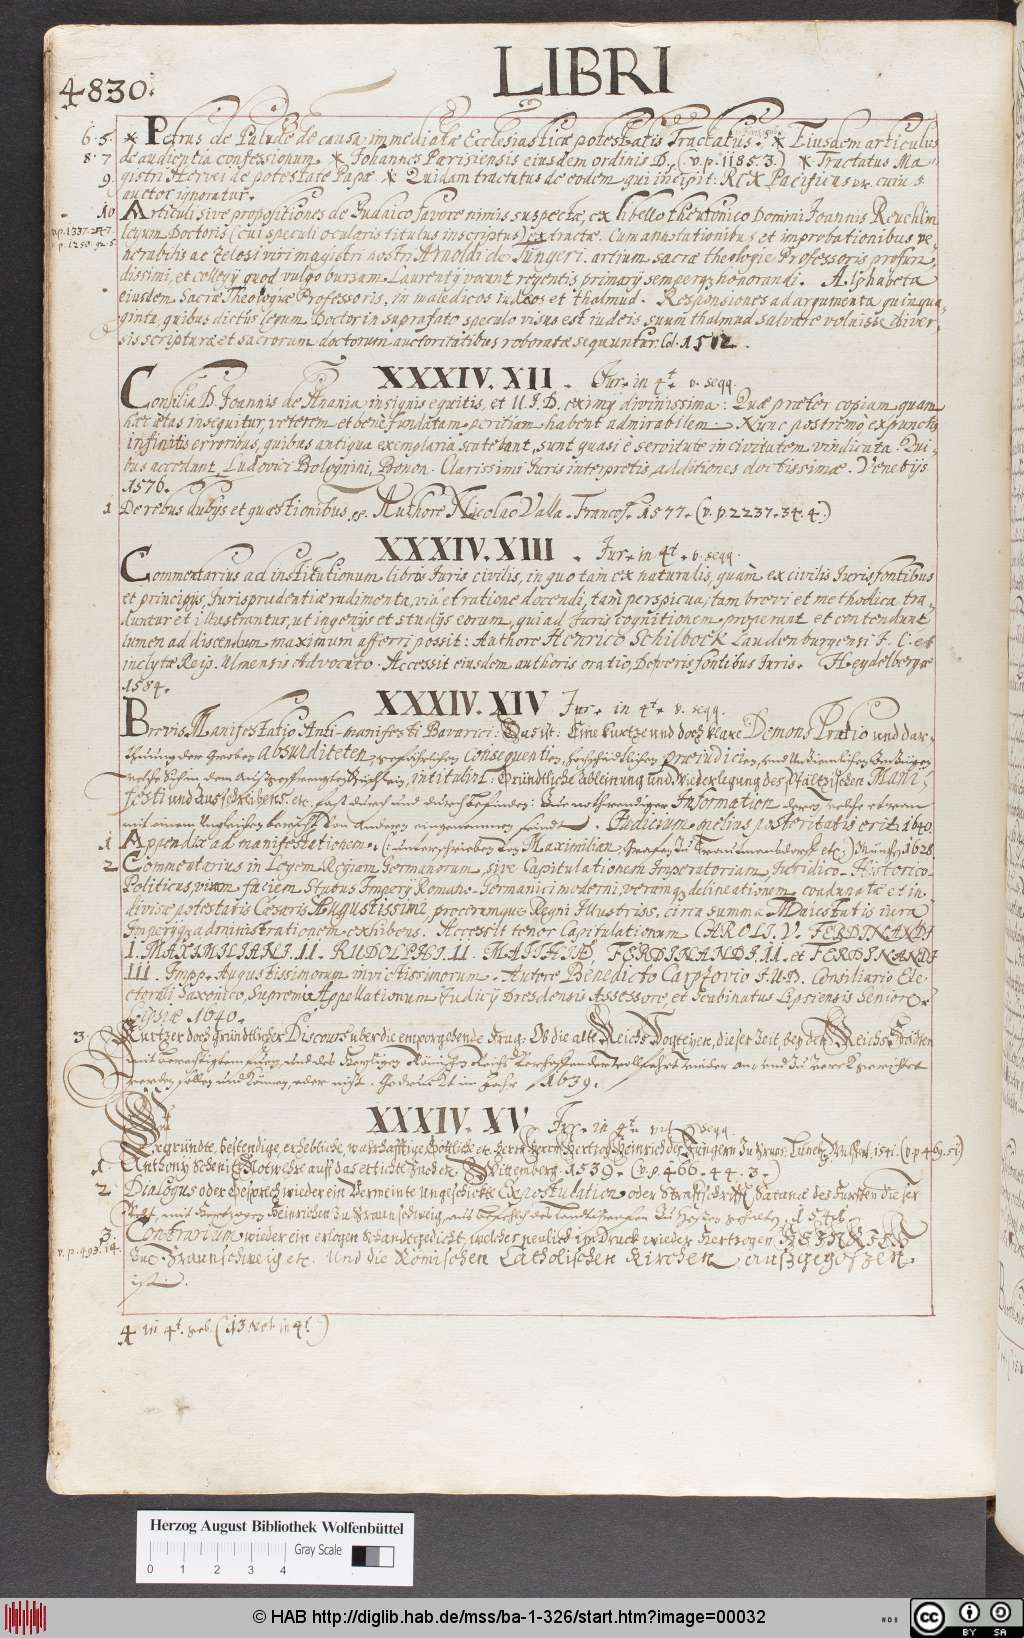 LIBRI
4830.
6. 5. * Petrus de Palude de causa immediatæ Ecclesiasticæ potestatis Tractatus. * Eiusdem articulus
8. 7 de audientia confessionum * Johannes Parisiensis eiusdem ordinis D. (v. p. 1185. 3.) * Tractatus Ma-
9. gistri Hervei de potestate Papæ * Quidam tractatus de eodem qui incipit: REX Pacificus cuius
auctor ignoratur.
10 Articuli sive propositiones de Judaico favore nimis suspectæ, ex libello theutonico Domini Joannis Reuchlin
legum Doctoris (cui speculi ocularis titulus inscriptus) extractæ. Cum annotationibus et improbationibus ve-
nerabilis ac zelosi viri magistri nostri Arnoldi de Tungeri. artium sacræ theologie Professoris profun-
dissimi, et collegij quod vulgo bursam Laurentij vocant regentis primarij semperque honorandi. Alphabeta
eiusdem Sacræ Theologiæ Professoris, in maledicos iudæos et thalmud. Responsiones ad argumenta quinqua-
ginta, quibus dictus legum Doctor in suprafato speculo visus est iudeis suum thalmud salvare voluisse diver-
sis scripturæ et sacrorum doctorum auctoritatibus roboratæ sequuntur. Col. 1512.
XXXIV. XII. Jur. in 4t. v. seqq.
Consilia D. Joannis de Anania, insignis equitis, et U. J. D. eximij divinissima: Quæ præter copiam quam
hæc ætas insequitur, veterem et bene fundatam peritiam habent admirabilem. Nunc postremo expunctis
infinitis erroribus, quibus antiqua exemplaria scatebant, sunt quasi è servitute in civitatem vindicata. Qui-
bus accedunt Ludovici Bolognini, Bonon. Clarissimi Juris interpretis, additiones doctissimæ. Venetijs
1576.
1 De rebus dubijs et quæstionibus Authore Nicolao Valla. Francof. 1577. (v. p. 2237. 34. 4.)
XXXIV. XIII. Jur. in 4t. v. seqq.
Commentarius ad institutionum libros Juris civilis, in quo tam ex naturalis, quàm ex civilis Juris fontibus
et principijs, Jurisprudentiæ rudimenta, viâ et ratione docendi, tam perspicua, tam brevi et methodica tra-
duntur et illustrantur, ut ingenijs et studijs eorum, qui ad Juris cognitionem properant et contendunt
lumen ad discendum maximum afferri possit: Authore Henrico Schilbock Laudenburgensi J. C. et
inclytæ Reip. Ulmensis Advocato. Accessit eiusdem authoris oratio, De veris fontibus Juris. Heydelbergæ
1584.
XXXIV. XIV Jur. in 4t. v. seqq.
Brevis Manifestatio Anti-manifesti Bavarici: Das ist: Eine kurtze und doch klare Demonstratio und dar-
thuung der groben absurditeten, gefährlichen Consequentien, hochschädlichen præiudicien, und
intitulirt: Gründtliche ableinung und Widerlegung des Pfältzischen Mani-
festi und ausschreibens. etc. fast durch und durch befinden: Zue nothwendiger Information deren, welche etwan
mit einem von anderen eingenommen seindt. Judicium melius posteritatis erit. 1640.
1 Appendix ad manifestationem. (: unterschrieben von Maximilian, Grafen zu Trautmansdorff etc:) Munchen 1628.
2 Commentarius in Legem Regiam Germanorum, sive Capitulationem Imperatoriam Juridico-Historico-
Politicus, vivam faciem Status Imperij Romano-Germanici moderni, veramque delineationem coadunatæ et in-
divisæ potestatis Cæsaris Augustissimi procerumque Regni Illustriss. circa summa Maiestatis iura
Imperijque administrationem exhibens. Accessit tenor Capitulationum CAROLI. V. FERDINANDI
I. MAXIMILIANI. II. RUDOLPHI. II. MATTHIÆ, FERDINANDI. II. et FERDINANDI
III. Impp. Augustissimorum invictissimorum. Autore Benedicto Carpzovio J. U. D. Consiliario Ele-
ctorali Saxonico, Supremi Appellationum Judicij Dresdensis Assessore, et Scabinatus Lipsiensis Seniore
Lipsiæ 1640.
3. Kurtzer doch gründtlicher Discours uber die emporgehende frag: Ob die alte Reichs Vogteyen, dieser Zeit, bey den Reichs Städten
werden sollen und können, oder nicht. Gedruckt im Jahr 1639.
XXXIV. XV. Jur. in 4t. seqq.
Gegründte, bestendige, erhebliche, warhafftige göttliche etc. Herrn Hertzog Heinrichs des Jüngern zu Bruns. Luneb. Wulffen. 1541. (v. p. 469. 51)
1. Anthony Schenitz Notwehre auff das ertichte Wittenberg. 1539. (v. p. 466. 44. 3.)
2 Dialogus oder Gesprech wieder ein Vermeinte Ungeschickte Expostulation oder Straffschrifft, Satanæ des Fursten dieser
Welt, mit Hertzogen Heinrichen zu Braunschweig, gehalten. 154
3. Contrarium wieder ein erlogen Schandtgedicht, welches neulich im Druck wieder Hertzogen HEINRICH
zue Braunschweig etc. Und die Römischen Catholischen Kirchen ausgegossen
ist.
v. p. 1337. 247.
p. 1250. 92. 5.
v. p. 493. 14.
4 in 4t. (13. Not. in 4t.)
Herzog August Bibliothek Wolfenbüttel
Gray Scale
0 1 2 3 4
© HAB http://diglib.hab.de/mss/ba-1-326/start.htm?image=00032
WDB
cc BY SA